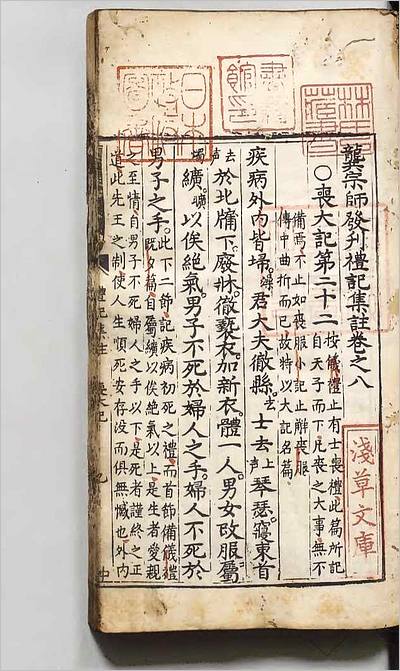 林氏藏書
書籍館印
日本政府圖書
淺草文庫
龔宗師發刊禮記集註卷之八
〇喪大記第二十二
按儀禮止有士喪禮此篇所記
自天子而下凡喪之大事無不
備焉不止如喪服小記止辯喪服
傳中曲折而已故特以大記名篇
疾病外內皆埽君大夫徹縣士去上声琴瑟寢東首
去声於北牖下廢牀徹褻衣加新衣體一人男女改服屬
燭纊曠以俟絕氣男子不死於婦人之手婦人不死於
男子之手
此下二節記疾病初死之禮而首節備儀禮
既夕篇自屬纊以俟絕氣以上是生者愛親
之至情自男子不死婦人之手以下是死者謹終之正
道此先王之制使人生順死安存没而俱無憾也外内
禮記集註